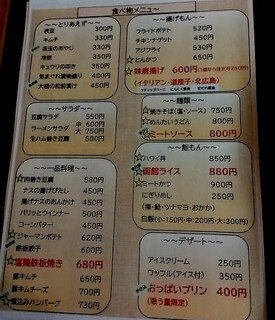 食べ物メニュー
～～とりあえず～～
枝豆 300円
キムチ 330円
目玉のおやじ 330円
冷奴 350円
キュウリの叩き 350円
気まぐれ漬物盛り 400円
大根の松前漬け 350円
～～サラダ～～
豆腐サラダ 550円
ラーメンサラダ 中 600円
大 750円
生ハム巻き豆腐 580円
～～一品料理～～
肉巻き豆腐 580円
ナスの揚げびたし 450円
揚げナスのあんかけ 450円
パリッとウインナー 500円
コーンバター 450円
ジャーマンポテト 620円
鉄板餃子 600円
塩鶏鉄板焼き 680円
豚キムチ 650円
豚キムチチーズ 700円
煮込みハンバーグ 730円
～～揚げもん～～
フライドポテト 520円
チキンナゲット 450円
アジフライ 530円
とんかつ 650円
味唐揚げ 600円
(イタリアン・道産子・北広島)
～～麺類～～
焼きそば(塩・ソース) 750円
めんたいうどん 800円
ミートソース 800円
～～飯もん～～
ハワイ丼 850円
函館ライス 880円
ミートかつ 900円
にぎりめし 250円
(梅・鮭・ツナマヨ・おかか)
白飯(小:150円・中:200円・大:300円)
～～デザート～～
アイスクリーム 250円
ワッフル(アイス付) 350円
おっぱいプリン 400円
(吸う量限定)